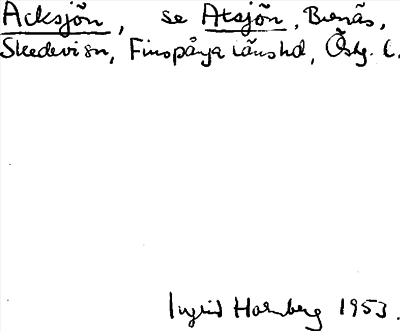 Acksjön, se Atsjön, Brenäs,
Skedevi sn, Finspånga länshd, Östg. l.
Ingrid Hornberg 1953.